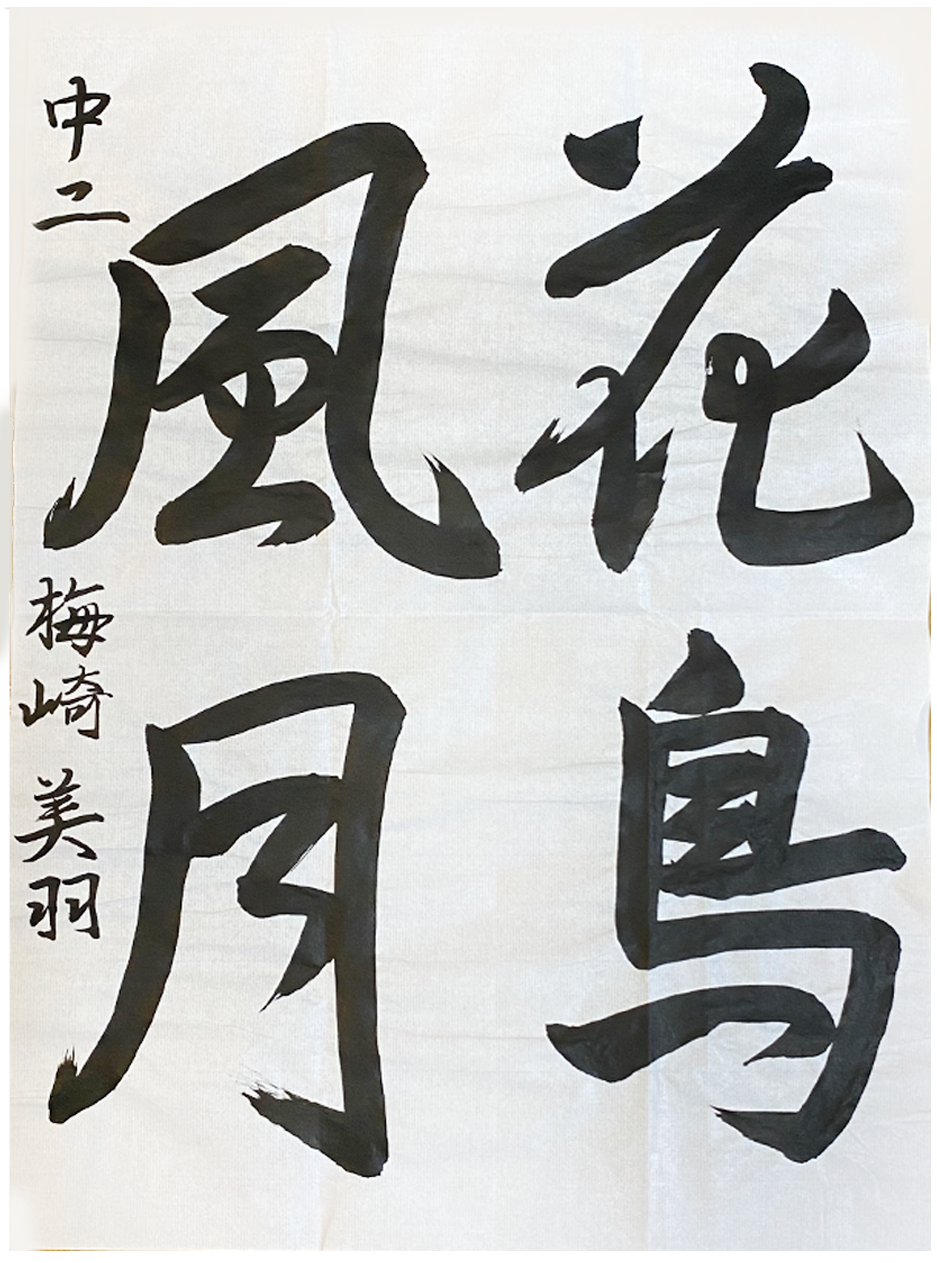 花鳥
風月
中二 梅崎美羽